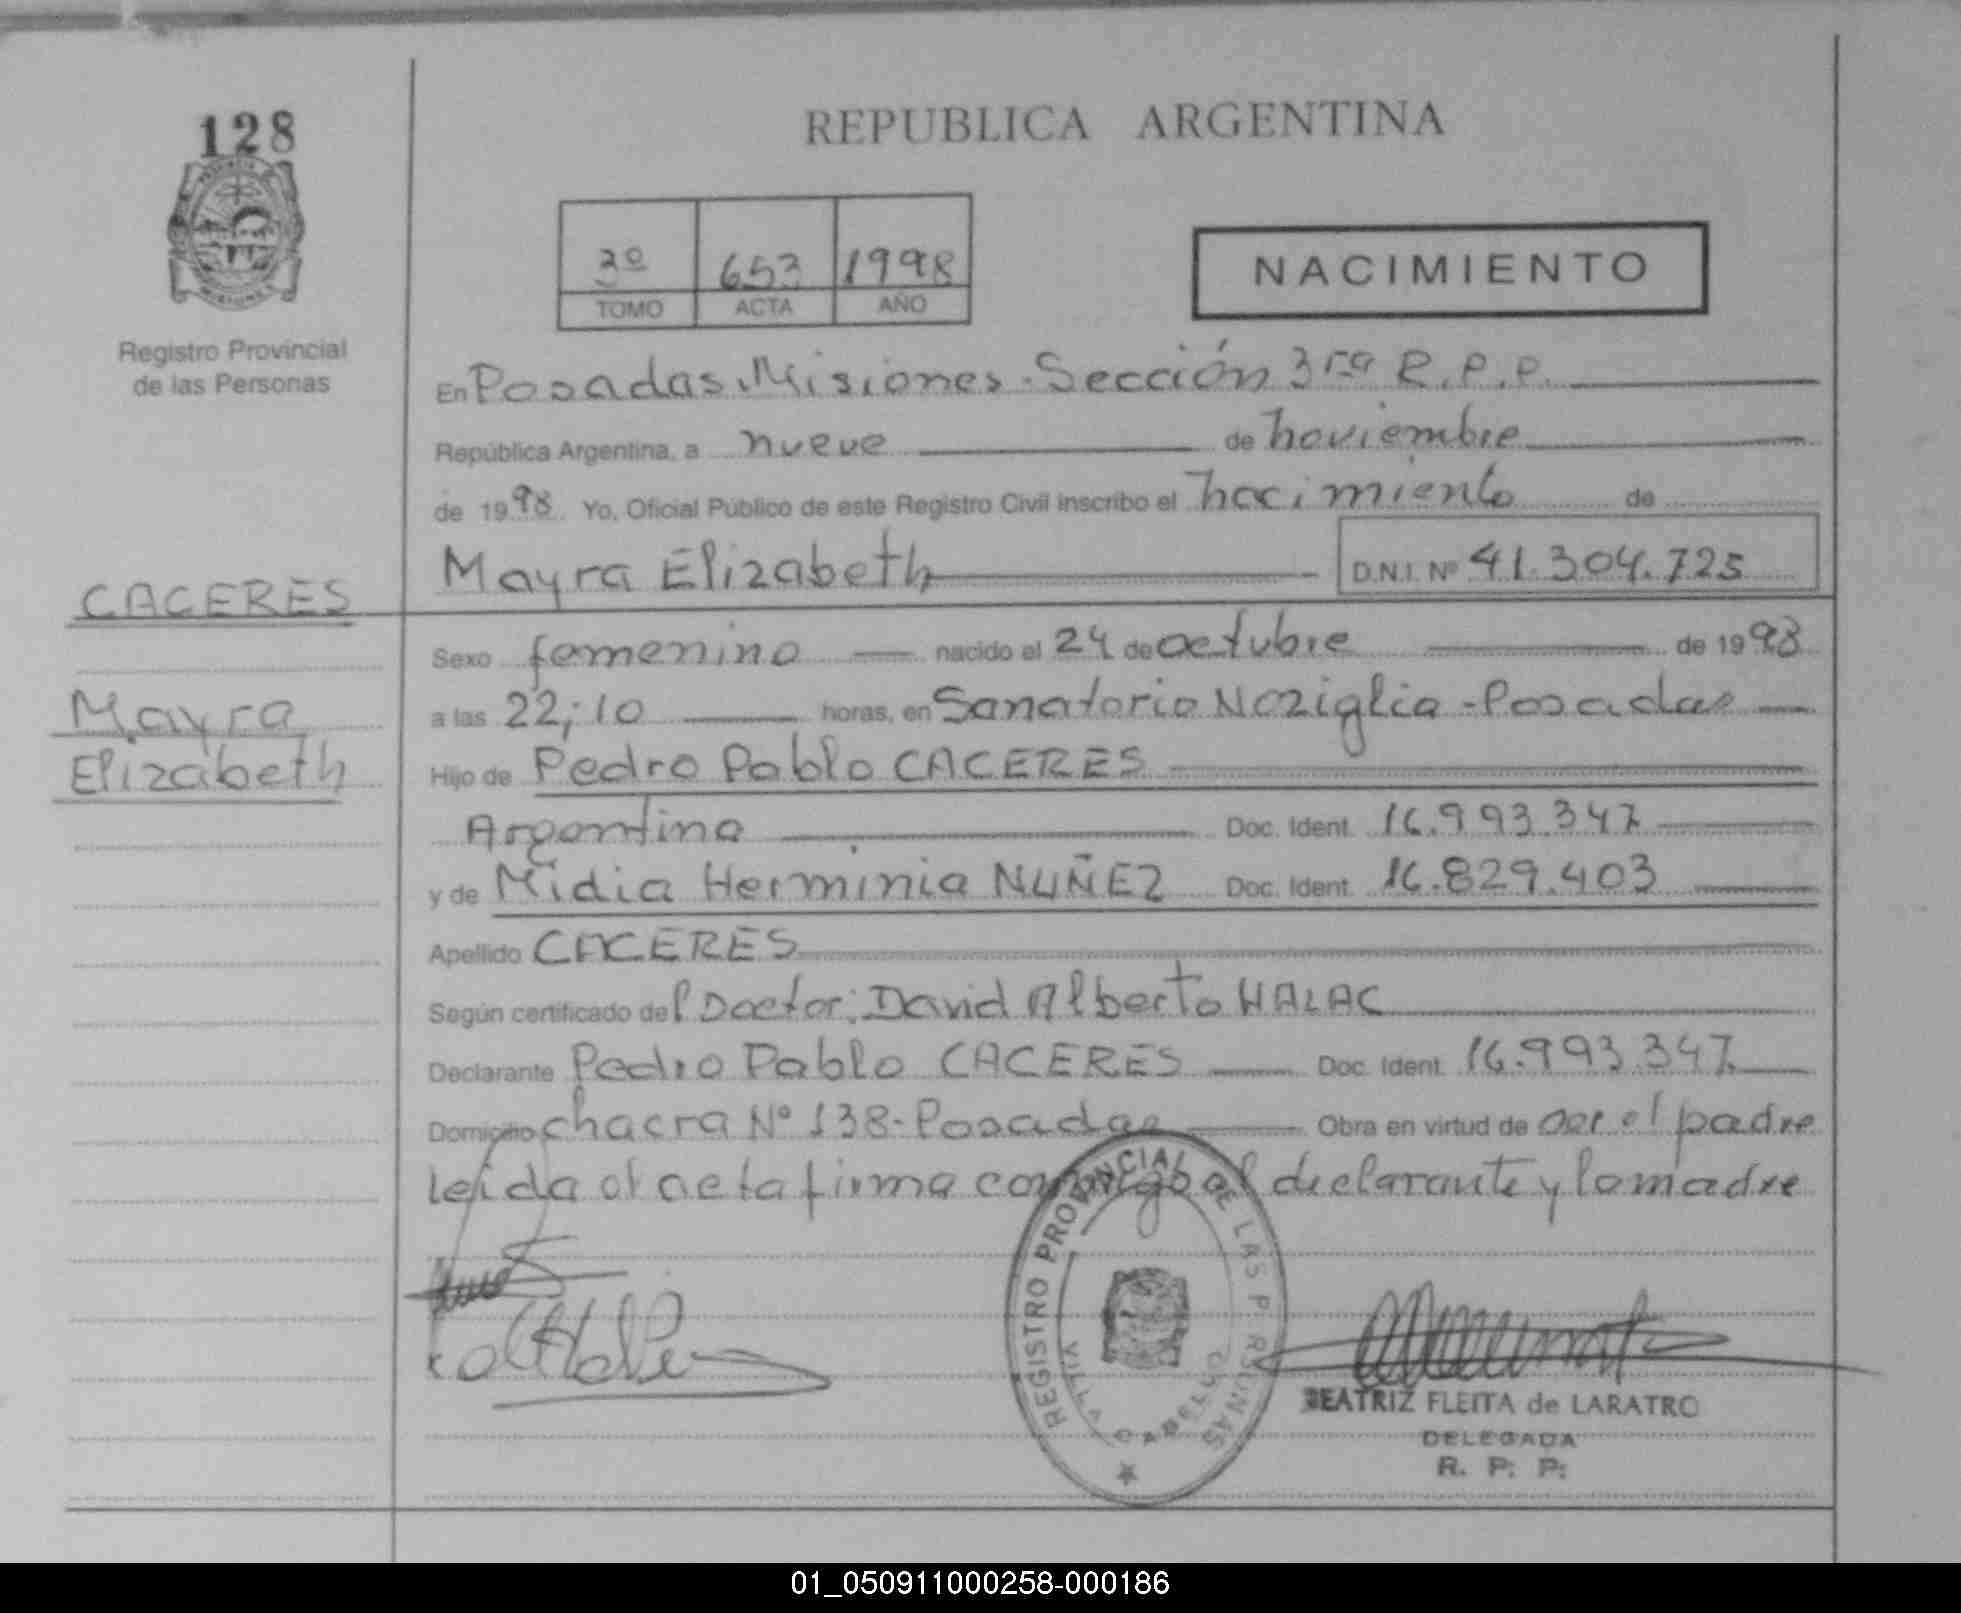 128
REPUBLICA ARGENTINA
3º 653 1998
TOMO ACTA AÑO
NACIMIENTO
Registro Provincial
de las Personas
En Posadas Misiones. Sección 3ra R.P.P.
República Argentina, a nueve de noviembre
de 1998 Yo, Oficial Público de este Registro Civil inscribo el nacimiento de
Mayra Elizabeth D.N.I. Nº 41.304.725
CACERES
Sexo femenino nacido el 24 de octubre de 1998
Mayra
a las 22;10 horas, en Sanatorio Noziglia - Posadas
Elizabeth
Hijo de Pedro Pablo CACERES
Argentino Doc. Ident. 16.993.347
y de Midia Herminia NUÑEZ Doc. Ident. 16.829.403
Apellido CACERES
Según certificado del Doctor: David Alberto HALAC
Declarante Pedro Pablo CACERES Doc. Ident. 16.993.347
Domicilio chacra Nº 138 - Posadas Obra en virtud de ser el padre
leida el acta firma conmigo el declarante y la madre
REGISTRO PROVINCIAL DE LAS PERSONAS
VILLA CABELLO
BEATRIZ FLEITA de LARATRO
DELEGADA
R. P. P.
01_050911000258-000186